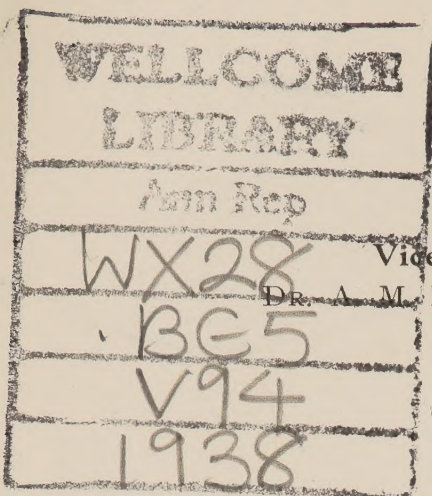 WELLCOME
LIBRARY
Ann Rep
WX28
Vice
DR. A. M.
BE5
V94
1938